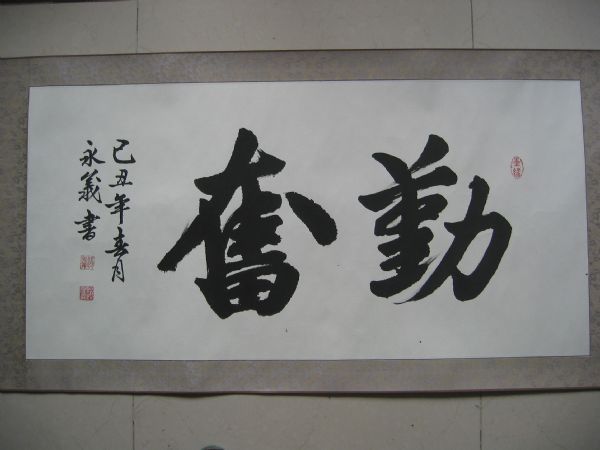 勤奮
己丑年春月
永義書